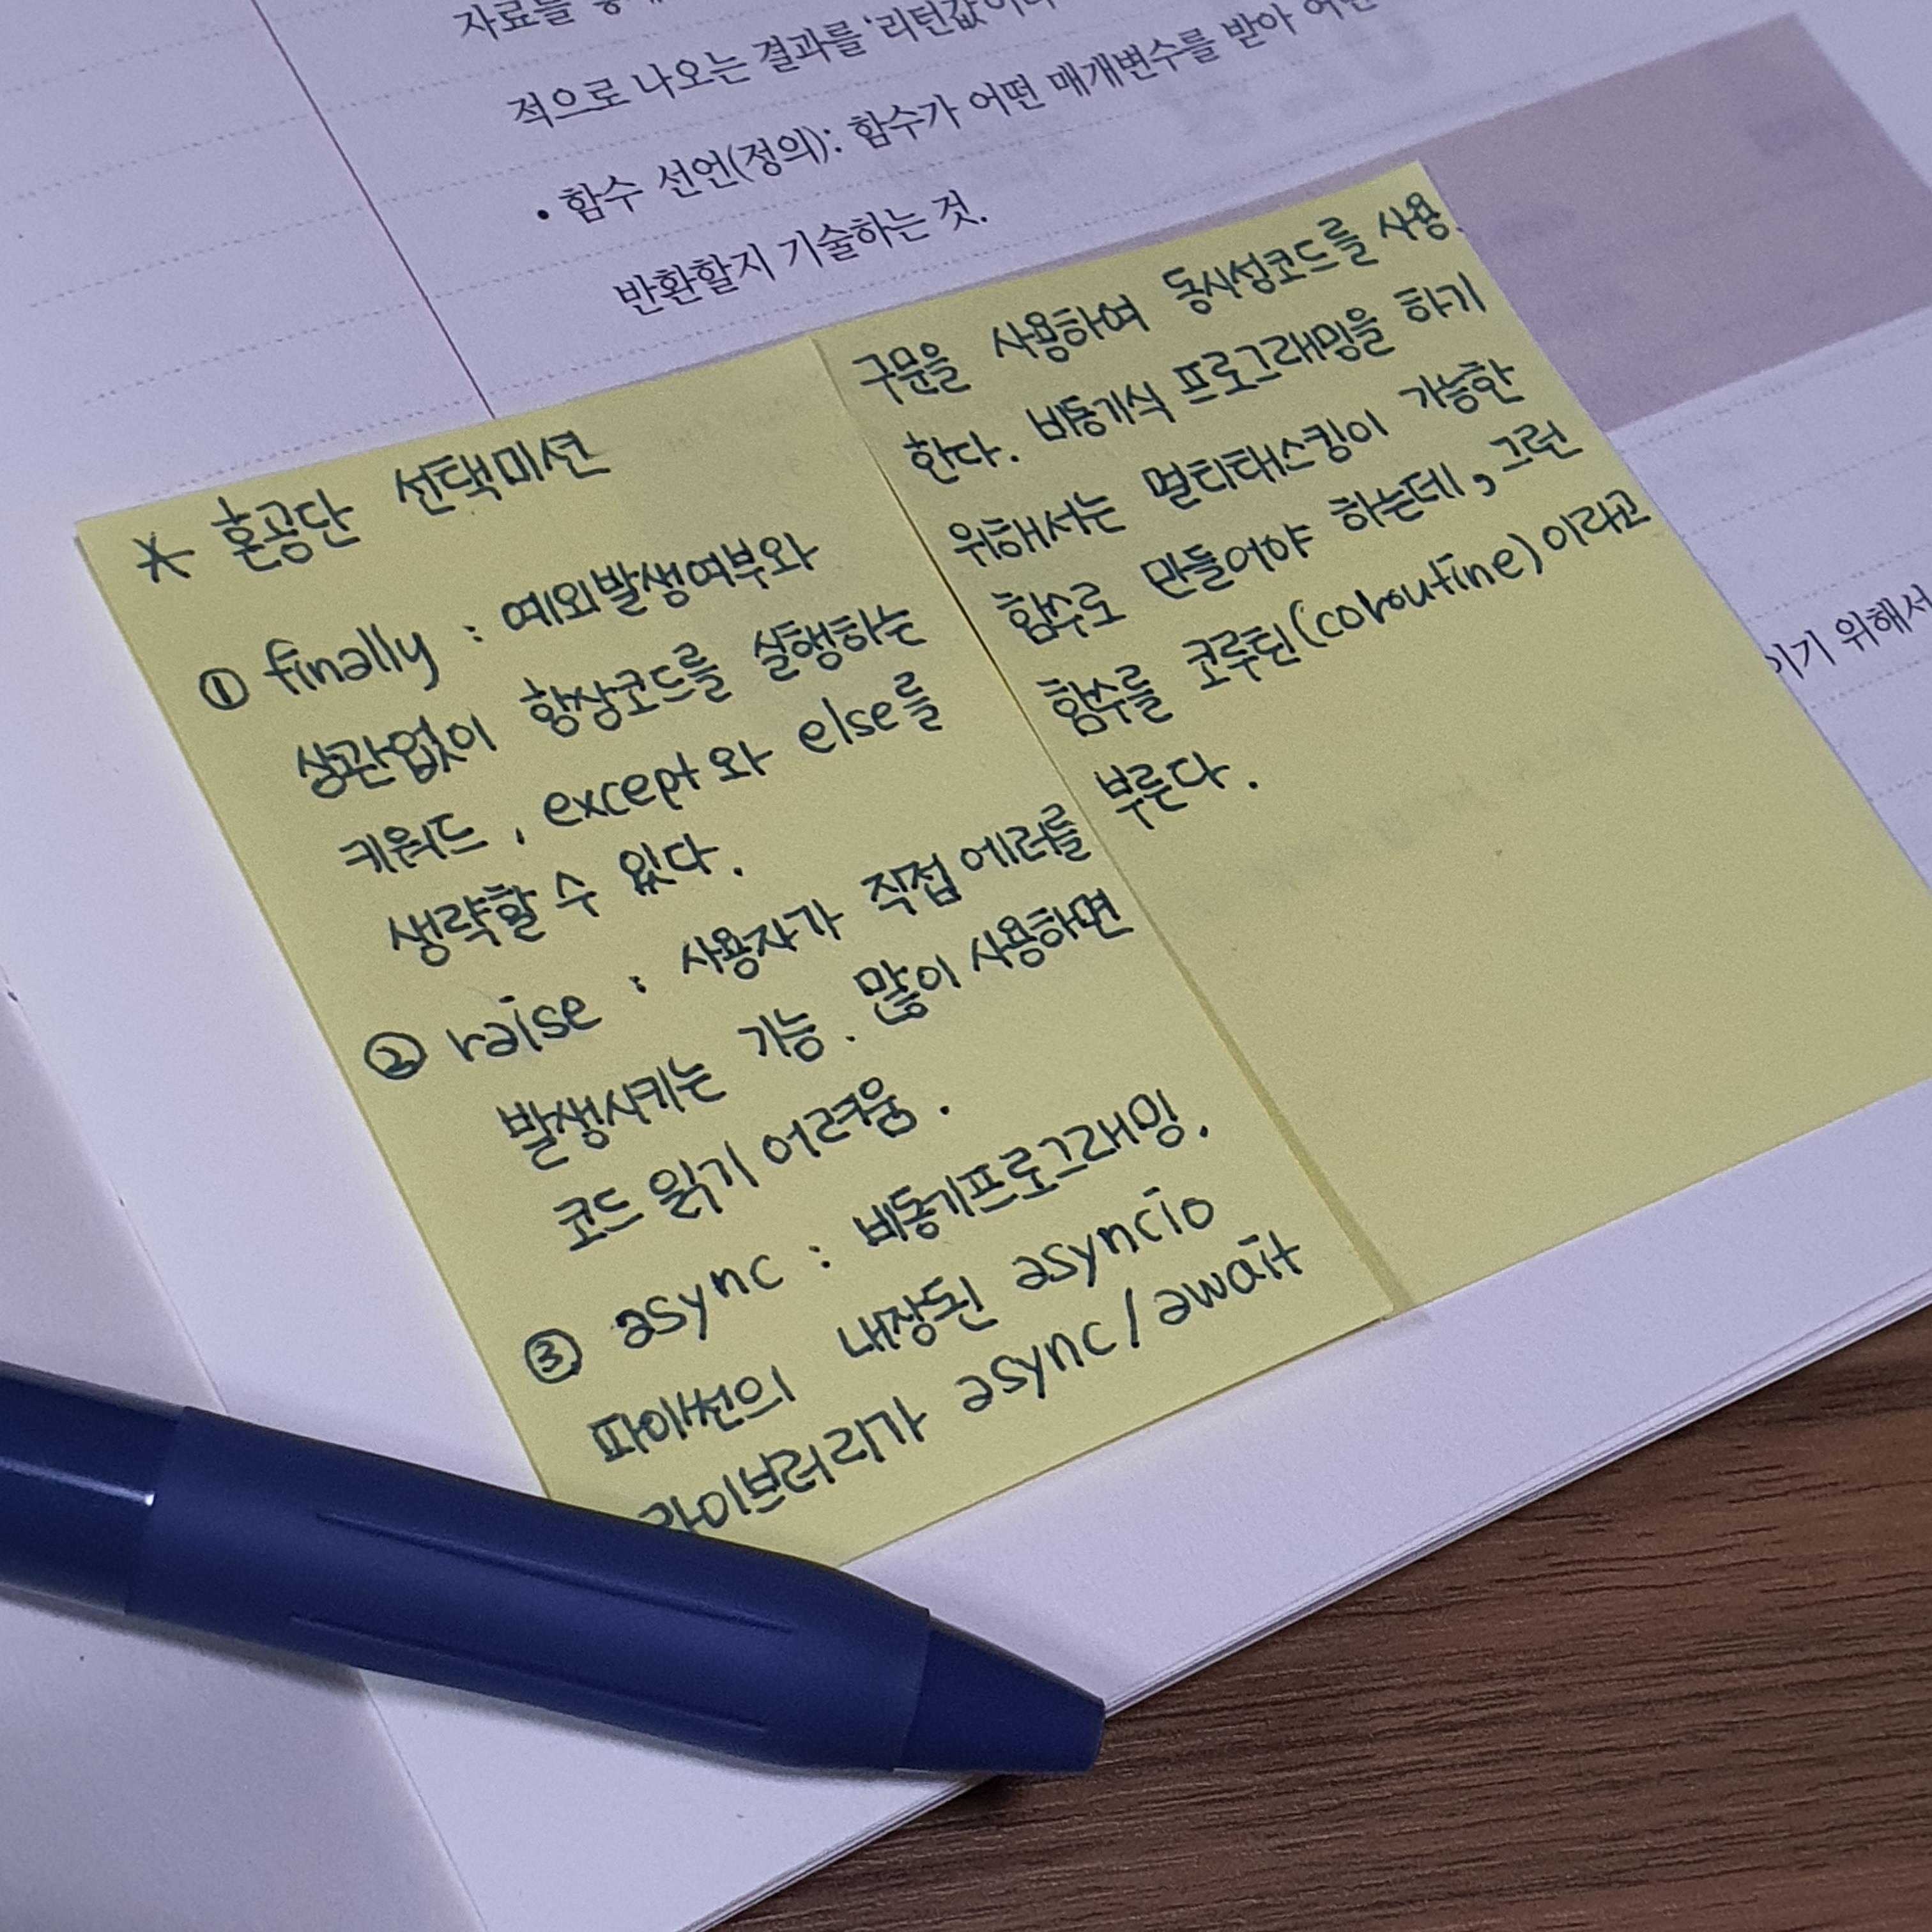 자료를
적으로 나오는 결과를 '리턴값'이라
• 함수 선언(정의): 함수가 어떤 매개변수를 받아 어떤
반환할지 기술하는 것.
* 혼공단 선택미션
① finally : 예외발생여부와
상관없이 항상코드를 실행하는
키워드, except와 else를
생략할 수 있다.
② raise : 사용자가 직접 에러를
발생시키는 기능. 많이 사용하면
코드 읽기 어려움.
③ async : 비동기프로그래밍.
파이썬의 내장된 asyncio
라이브러리가 async/await
구문을 사용하여 동시성코드를 사용
한다. 비동기식 프로그래밍을 하기
위해서는 멀티태스킹이 가능한
함수로 만들어야 하는데, 그런
함수를 코루틴(coroutine)이라고
부른다.
이기 위해서